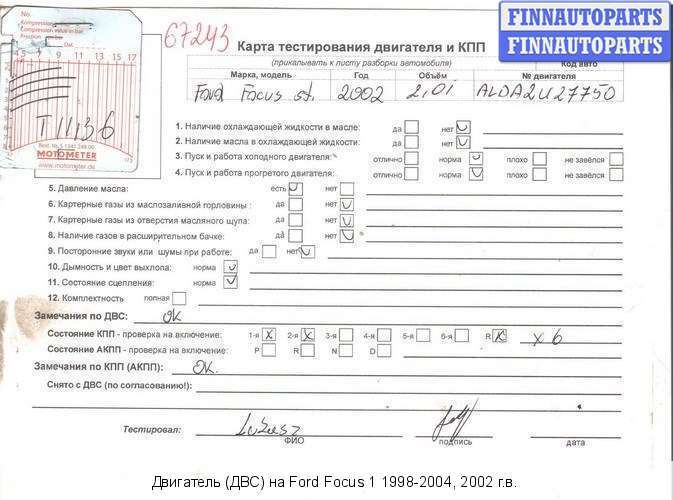 FINNAUTOPARTS
FINNAUTOPARTS
No.
67243
Карта тестирования двигателя и КПП
(прикалывать к листу разборки автомобиля)
Код авто
Марка, модель Год Объём № двигателя
Ford Focus st. 2002 2,0i ALDA2U27750
1. Наличие охлаждающей жидкости в масле: да нет
2. Наличие масла в охлаждающей жидкости: да нет
3. Пуск и работа холодного двигателя: отлично норма плохо не завёлся
4. Пуск и работа прогретого двигателя: отлично норма плохо не завёлся
5. Давление масла: есть нет
6. Картерные газы из маслозаливной горловины : да нет
7. Картерные газы из отверстия масляного щупа: да нет
8. Наличие газов в расширительном бачке: да нет
9. Посторонние звуки или шумы при работе: да нет
10. Дымность и цвет выхлопа: норма
11. Состояние сцепления: норма
12. Комплектность полная
MOTOMETER
www.motometer.de
Замечания по ДВС: OK
Состояние КПП - проверка на включение: 1-я X 2-я X 3-я 4-я 5-я 6-я R X x 6
Состояние АКПП - проверка на включение: P R N D
Замечания по КПП (АКПП): OK.
Снято с ДВС (по согласованию!):
Тестировал:
ФИО подпись дата
Двигатель (ДВС) на Ford Focus 1 1998-2004, 2002 г.в.